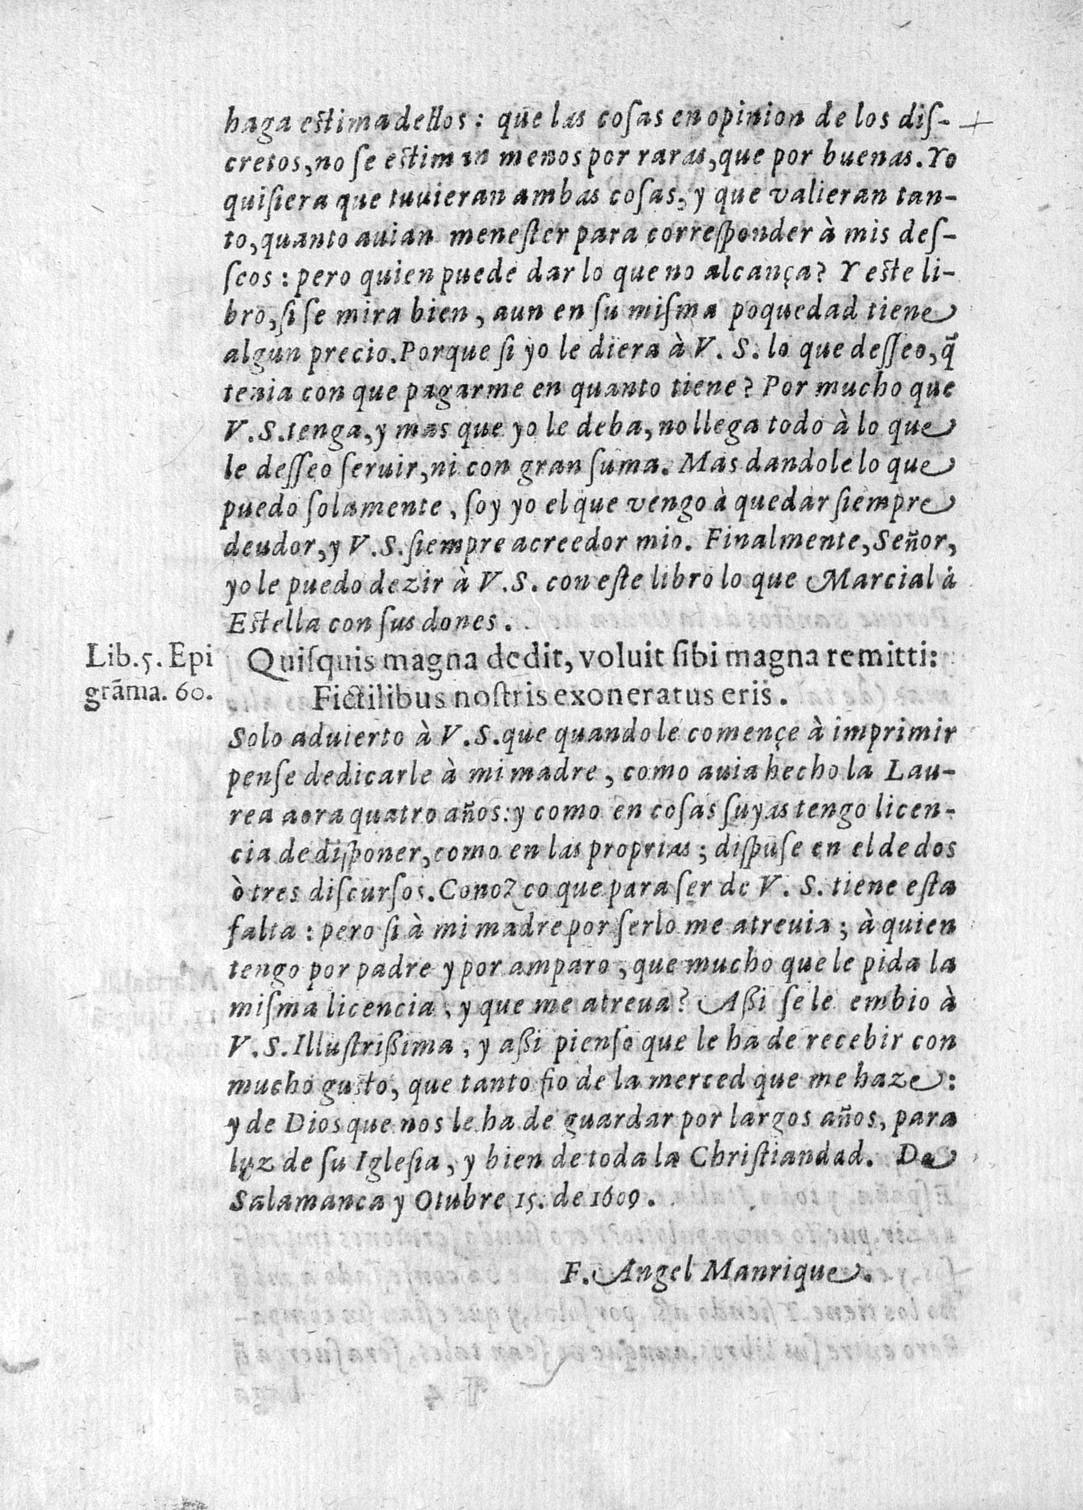 haga estima dellos: que las cosas en opinion de los dis-
cretos, no se estiman menos por raras, que por buenas. Yo
quisiera que tuuieran ambas cosas, y que valieran tan-
to, quanto auian menester para corresponder à mis des-
seos: pero quien puede dar lo que no alcança? Y este li-
bro, si se mira bien, aun en su misma poquedad tiene
algun precio. Porque si yo le diera à V. S. lo que desseo, q̃
tenia con que pagarme en quanto tiene? Por mucho que
V. S. tenga, y mas que yo le deba, no llega todo à lo que
le desseo seruir, ni con gran suma. Mas dandole lo que
puedo solamente, soy yo el que vengo à quedar siempre
deudor, y V. S. siempre acreedor mio. Finalmente, Señor,
yo le puedo dezir à V. S. con este libro lo que Marcial à
Estella con sus dones.
Lib. 5. Epi
grãma. 60.
Quisquis magna dedit, voluit sibi magna remitti:
Fictilibus nostris exoneratus eris.
Solo aduierto à V. S. que quando le començe à imprimir
pense dedicarle à mi madre, como auia hecho la Lau-
rea aora quatro años: y como en cosas suyas tengo licen-
cia de disponer, como en las proprias; dispuse en el de dos
ò tres discursos. Conozco que para ser de V. S. tiene esta
falta: pero si à mi madre por serlo me atreuia; à quien
tengo por padre y por amparo, que mucho que le pida la
misma licencia, y que me atreua? Assi se le embio à
V. S. Illustrissima, y assi pienso que le ha de recebir con
mucho gusto, que tanto fio de la merced que me haze:
y de Dios que nos le ha de guardar por largos años, para
luz de su Iglesia, y bien de toda la Christiandad. De
Salamanca y Otubre 15. de 1609.
F. Angel Manrique.